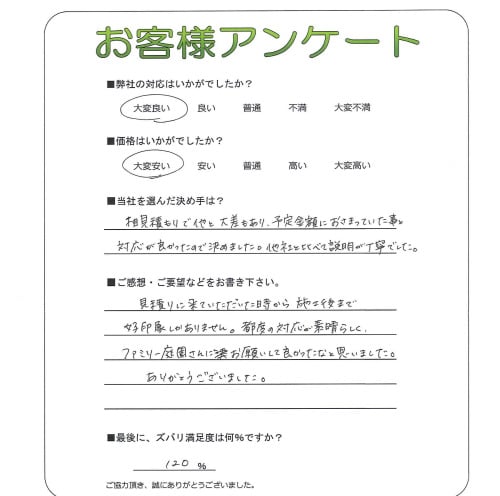 お客様アンケート
■弊社の対応はいかがでしたか？
大変良い 良い 普通 不満 大変不満
■価格はいかがでしたか？
大変安い 安い 普通 高い 大変高い
■当社を選んだ決め手は？
相見積もりで他と大差もあり、予定金額におさまっていた事と
対応が良かったので決めました。他社と比べて説明が丁寧でした。
■ご感想・ご要望などをお書き下さい。
見積りに来ていただいた時から施工後まで
好印象しかありません。都度の対応が素晴らしく、
ファミリー庭園さんにお願いして良かったなと思いました。
ありがとうございました。
■最後に、ズバリ満足度は何%ですか？
120 %
ご協力頂き、誠にありがとうございました。